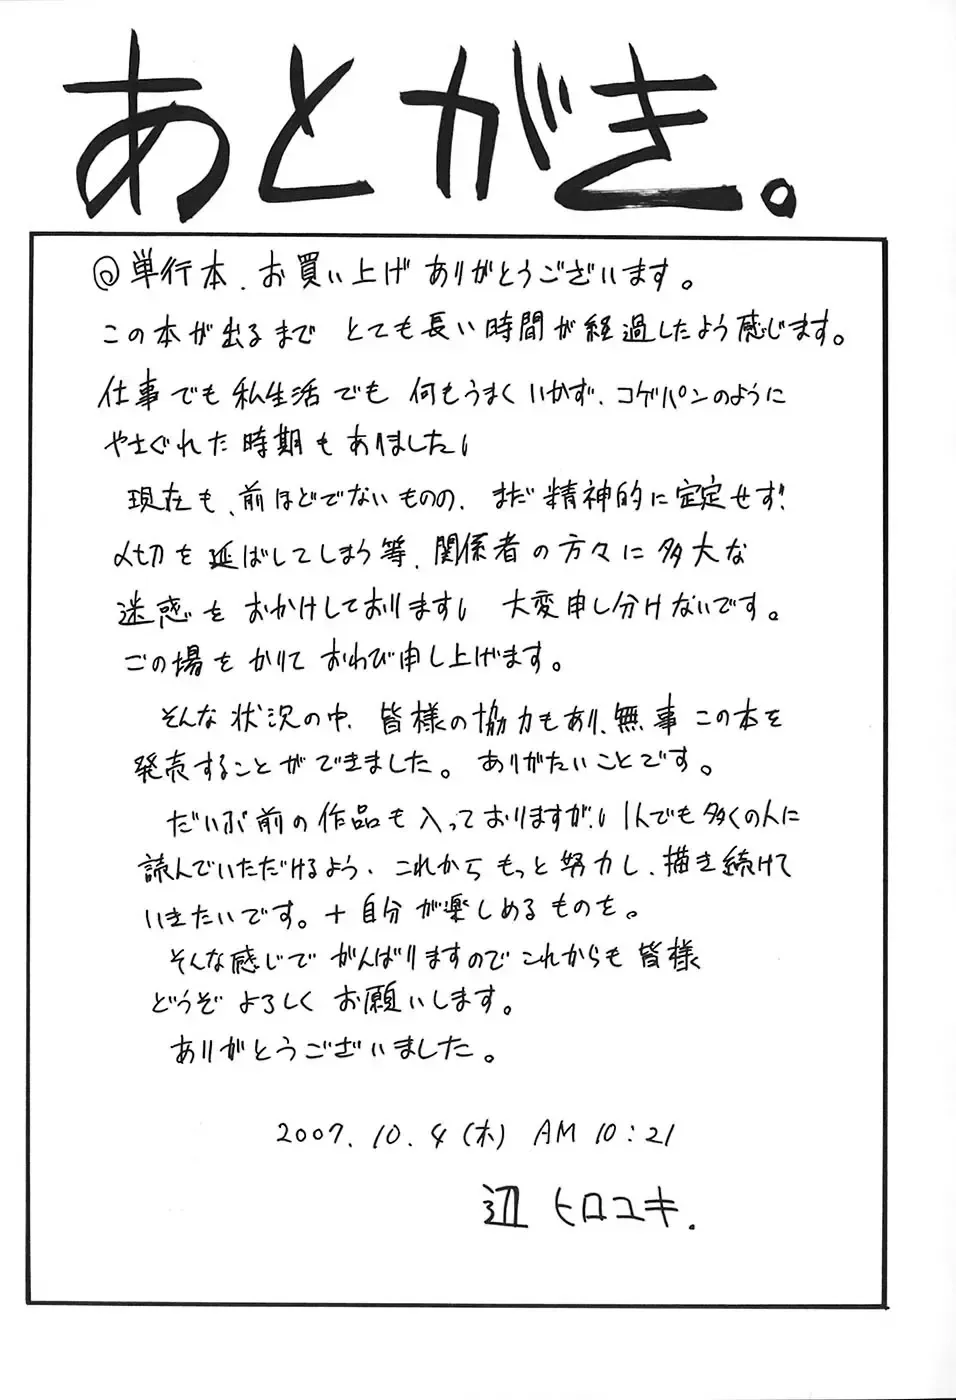 あとがき。
@単行本、お買い上げありがとうございます。
この本が出るまで とても長い時間が経過したよう感じます。
仕事でも私生活でも 何もうまくいかず、コゲパンのように
やさぐれた時期もありました!
現在も、前ほどでないものの、まだ精神的に安定せず!
〆切を延ばしてしまう等、関係者の方々に多大な
迷惑をおかけしております! 大変申し分けないです。
この場をかりておわび申し上げます。
そんな状況の中、皆様の協力もあり、無事この本を
発売することができました。ありがたいことです。
だいぶ前の作品も入っておりますが、! 1人でも多くの人に
読んでいただけるよう、これからもっと努力し、描き続けて
いきたいです。+自分が楽しめるものを。
そんな感じでがんばりますのでこれからも皆様
どうぞよろしくお願いします。
ありがとうございました。
2007. 10. 4 (木) AM 10:21
辺 ヒロユキ.